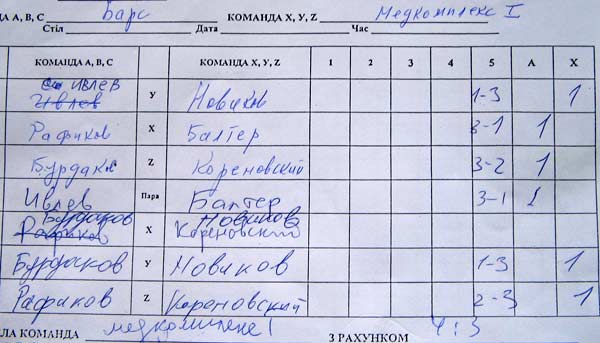 А, В, С Барс КОМАНДА X, Y, Z Медкомплекс I
Стіл Дата Час
КОМАНДА А, В, С КОМАНДА X, Y, Z 1 2 3 4 5 А Х
ивлев
Ивлев У Новиков 1-3 1
Рафиков X Балтер 3-1 1
Бурдаков Z Кореновский 3-2 1
Ивлев Пара Балтер 3-1 1
Бурдаков Новиков
Рафиков X Кореновский
Бурдаков У Новиков 1-3 1
Рафиков Z Кореновский 2-3 1
ЛА КОМАНДА З РАХУНКОМ 4:3